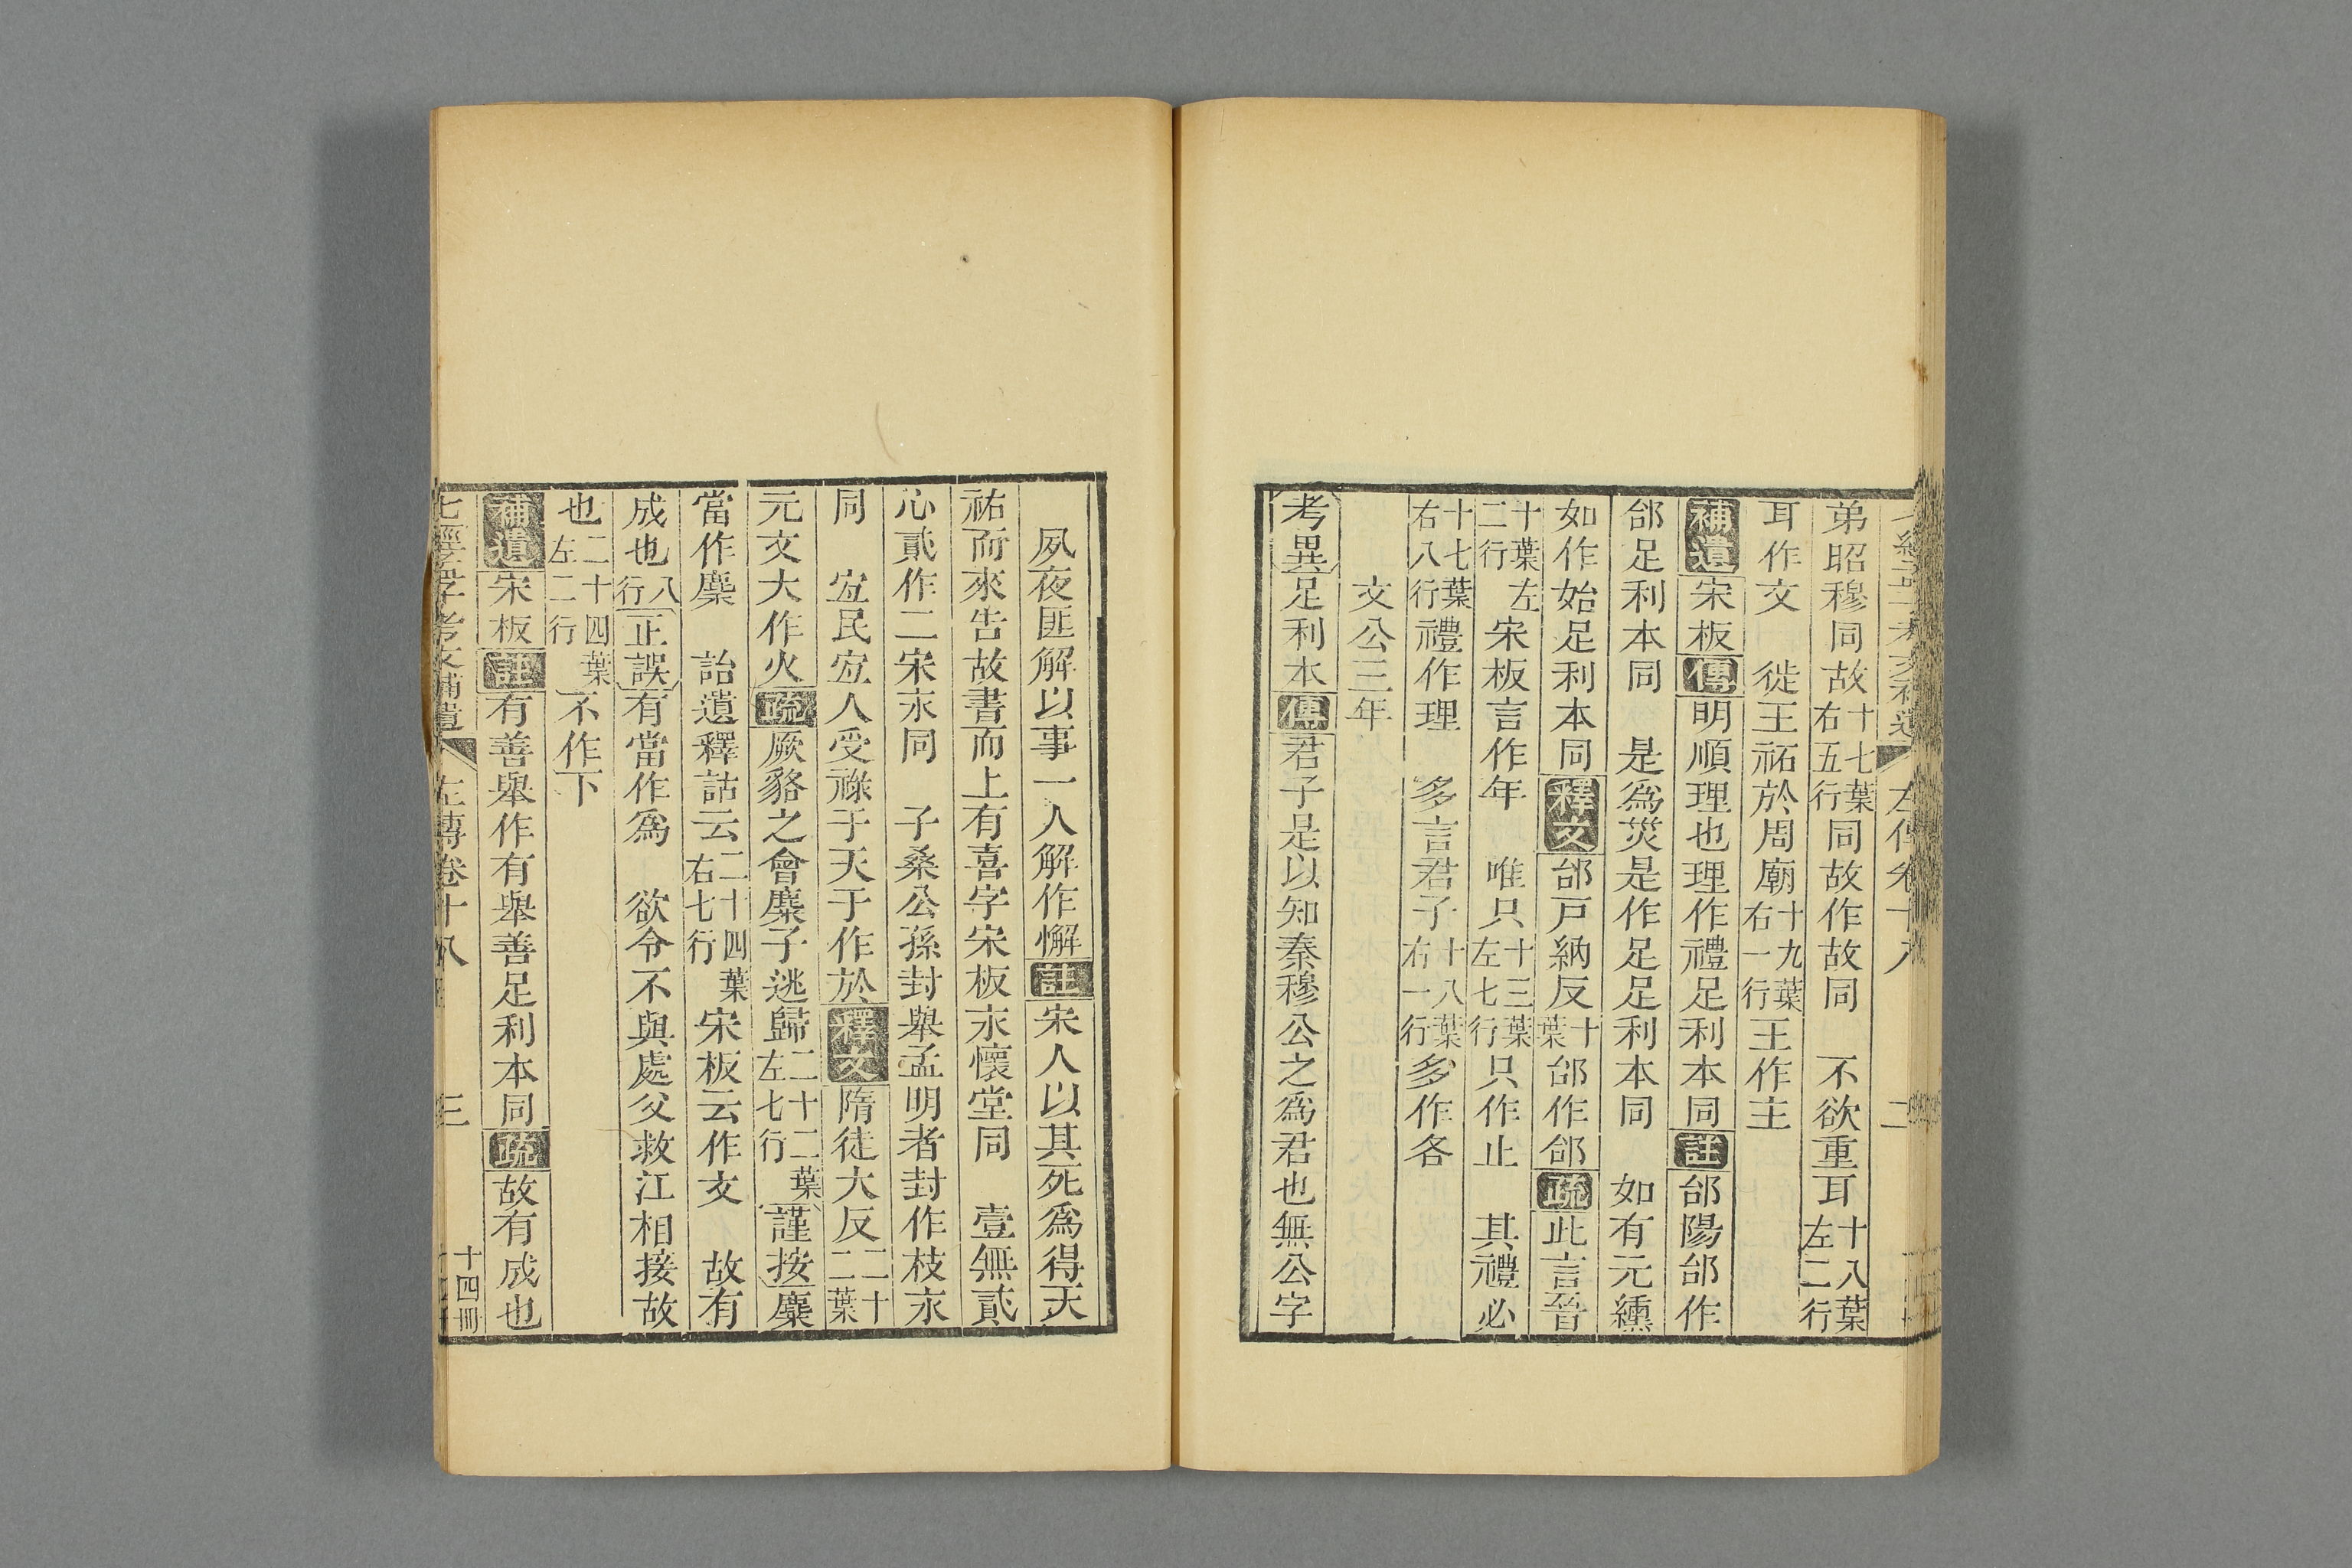 弟昭穆同故十七葉右五行同故作故同　不欲重耳十八葉左二行
耳作文　徙王祏於周廟十九葉右一行王作主
補遺宋板傳明順理也理作禮足利本同註郃陽郃作
郤足利本同　是爲災是作足足利本同　如有元纁
如作始足利本同釋文郃戸納反十葉郃作郤疏此言晉
十葉左二行宋板言作年　唯只十三葉左七行只作止　其禮必
十七葉右八行禮作理　多言君子十八葉右一行多作各
文公三年
考異足利本傳君子是以知秦穆公之爲君也無公字
夙夜匪解以事一人解作懈註宋人以其死爲得天
祐而來告故書而上有喜字宋板永懷堂同　壹無貳
心貳作二宋永同　子桑公孫封舉孟明者封作枝永
同　宜民宜人受祿于天于作於釋文隋徒大反二十二葉
元文大作火疏厥貉之會麋子逃歸二十二葉左七行謹按麋
當作麇　詒遺釋詁云二十四葉右七行宋板云作文　故有
成也八行正誤有當作爲　欲令不與處父救江相接故
也二十四葉左二行不作下
補遺宋板註有善舉作有舉善足利本同疏故有成也
七經孟子考文補遺　左傳卷十八　三　十四冊